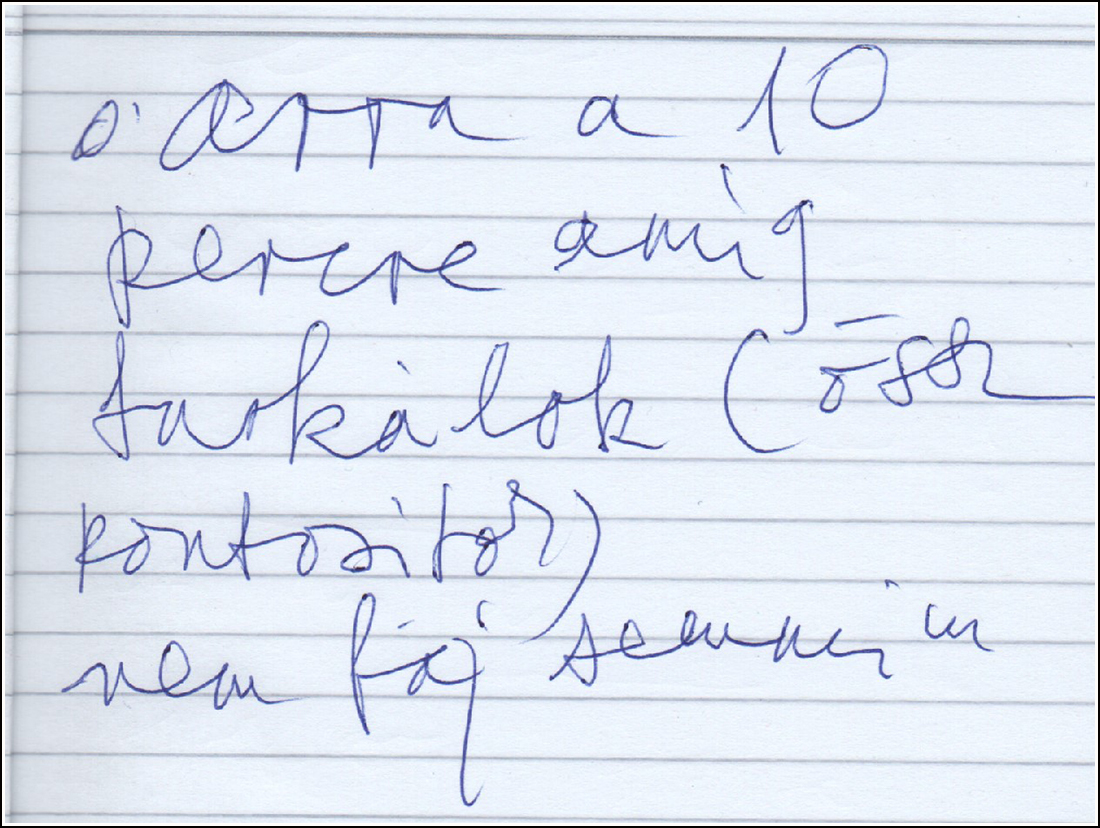 ó arra a 10
percre amíg
(össz
pontosítok)
nem fáj semmi